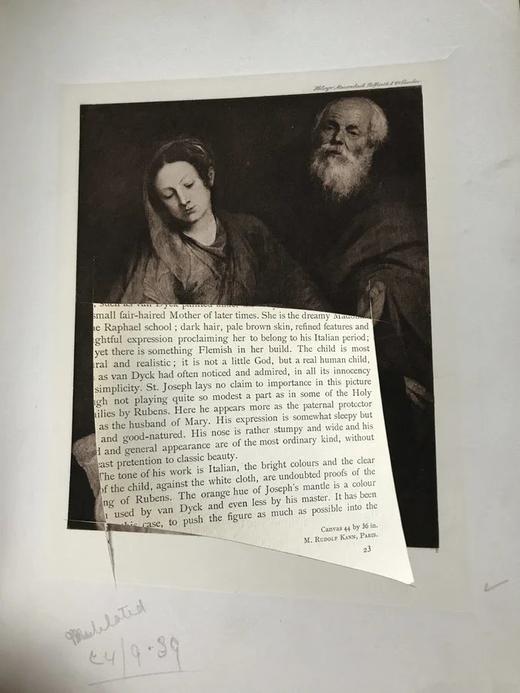 such as van Dyck painted
small fair-haired Mother of later times. She is the dreamy Madonna
Raphael school ; dark hair, pale brown skin, refined features and
ghtful expression proclaiming her to belong to his Italian period;
yet there is something Flemish in her build. The child is most
ral and realistic ; it is not a little God, but a real human child,
as van Dyck had often noticed and admired, in all its innocency
simplicity. St. Joseph lays no claim to importance in this picture
gh not playing quite so modest a part as in some of the Holy
ilies by Rubens. Here he appears more as the paternal protector
as the husband of Mary. His expression is somewhat sleepy but
and good-natured. His nose is rather stumpy and wide and his
and general appearance are of the most ordinary kind, without
ast pretention to classic beauty.
The tone of his work is Italian, the bright colours and the clear
of the child, against the white cloth, are undoubted proofs of the
ng of Rubens. The orange hue of Joseph's mantle is a colour
used by van Dyck and even less by his master. It has been
this case, to push the figure as much as possible into the
Canvas 44 by 36 in.
M. Rudolf Kann, Paris.
23
Mutilated
24/9.39